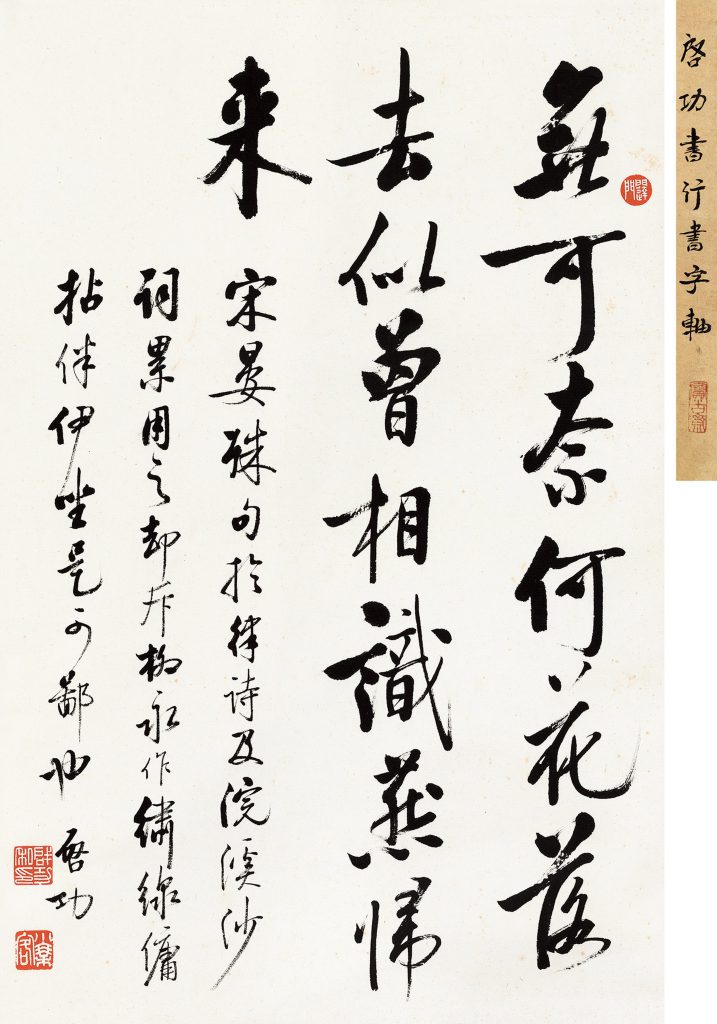 啓功書行書字軸
無可奈何花落
去似曾相識燕歸
来 宋晏殊句於律詩及浣溪沙
詞累用之却斥柳永作繡線慵
拈伴伊坐是可鄙也 啓功